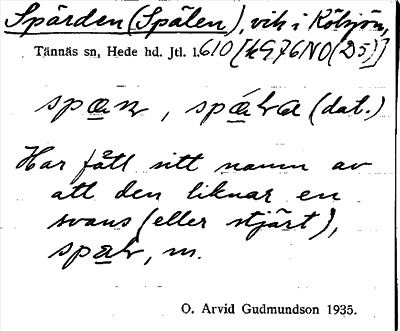 Spärden (Spälen), vik i Kölsjön,
Tännäs sn, Hede hd. Jtl. l. 610 [k G76NO(D5)]
spæn, spǽɫa (dat.)
Har fått sitt namn av
att den liknar en
svans (eller stjärt),
spæɫ, m.
O. Arvid Gudmundson 1935.